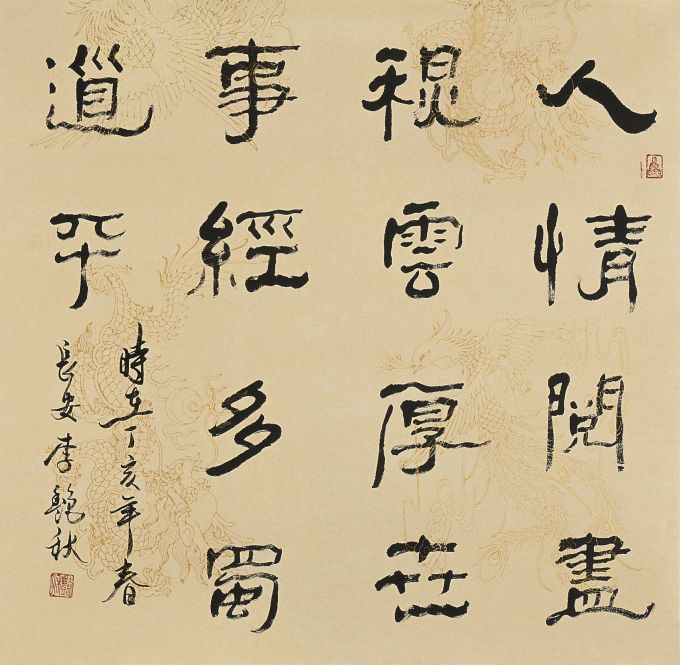 人情閱盡
秋雲厚世
事經多蜀
道平
時在丁亥年春
長安李秋